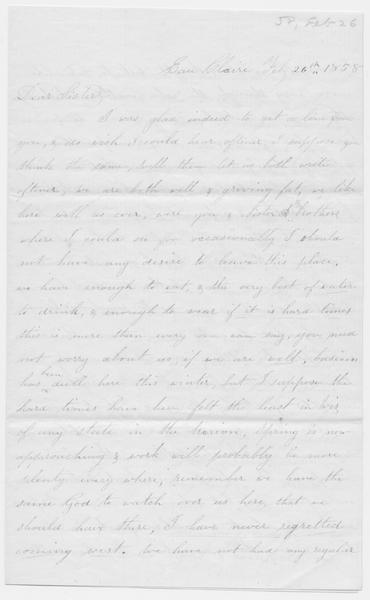 58, Feb 26
Eau Claire, Feb, 26th, 1858
Dear Sister,
I was glad indeed to get a line from
you, & do wish I could hear oftener, I suppose you
think the same, well then let us both write
oftener, we are both well & growing fat, we like
here well as ever, were you & Brothers
where I could see you occasionally I should
not have any desire to leave this place,
we have enough to eat, & the very best of water
to drink, & enough to wear if it is hard times
this is more than every one can say, you need
not worry about us, if we are well, business
has been dull here this winter, but I suppose the
hard times have been felt the least in Wis,
of any state in the Union, Spring is now
approaching & work will probably be more
plenty every where, remember we have the
same God to watch over us here, that we
should have there, I have never regretted
coming west. We have not had any regular